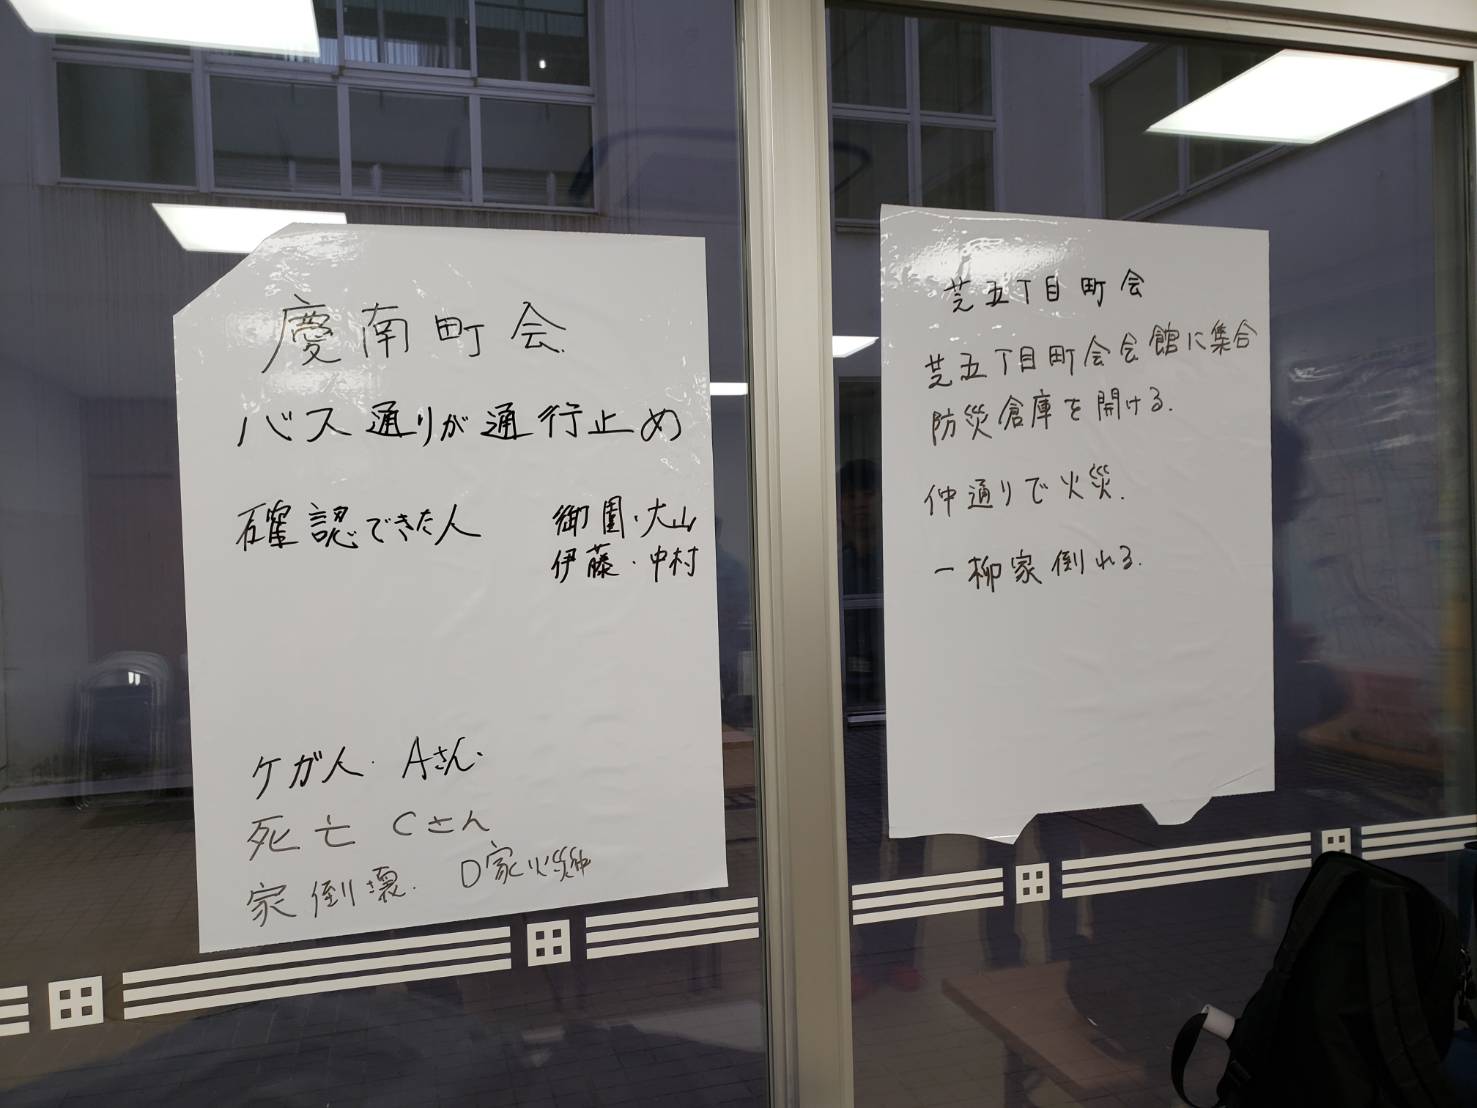 慶南町会
バス通りが通行止め
確認できた人 御園・大山
伊藤・中村
ケガ人. Aさん.
死亡 Cさん
家倒壊. D家火災中
芝五丁目町会
芝五丁目町会会館に集合
防災倉庫を開ける.
仲通りで火災.
一柳家倒れる.